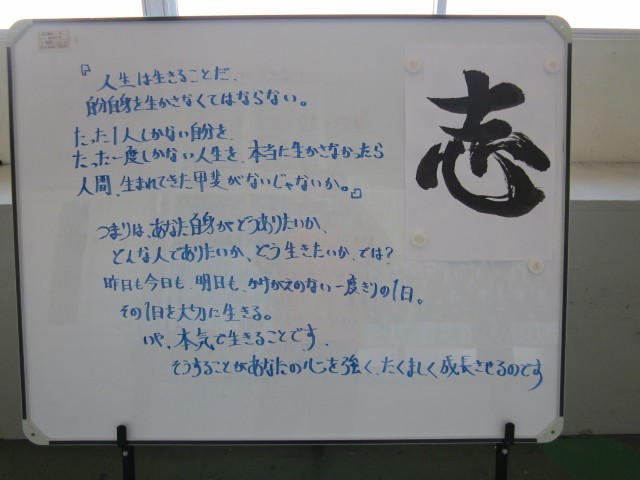 志
『人生は生きることだ、
自分自身を生かさなくてはならない。
たった1人しかない自分を、
たった一度しかない人生を、本当に生かさなかったら
人間、生まれてきた甲斐がないじゃないか。』
つまりは、あなた自身がどうありたいか、
どんな人でありたいか、どう生きたいか、では?
昨日も今日も、明日も、かけがえのない一度きりの1日。
その1日を大切に生きる。
いや、本気で生きることです、
そうすることがあなたの心を強く、たくましく成長させるのです